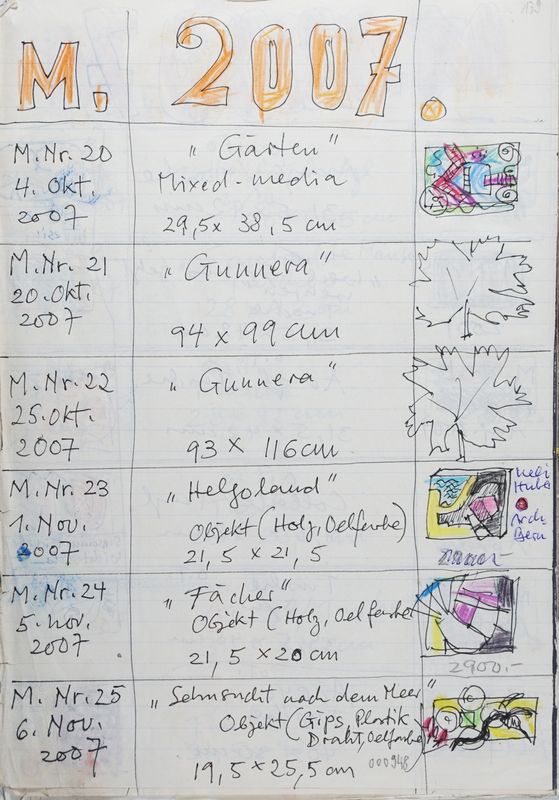 139
M. 2007.
M. Nr. 20
4. Okt.
2007
„Gärten"
Mixed-media
29,5 x 38,5 cm
M. Nr. 21
20. Okt.
2007
„Gunnera"
94 x 99 cm
M. Nr. 22
25. Okt.
2007
„Gunnera"
93 x 116 cm
M. Nr. 23
1. Nov.
2007
„Helgoland"
Objekt (Holz, Oelfarbe)
21,5 x 21,5
Ueli
Huber
Arch
Bern
M. Nr. 24
5. Nov.
2007
„Fächer"
Objekt (Holz, Oelfarbe)
21,5 x 20 cm
2900.-
M. Nr. 25
6. Nov.
2007
„Sehnsucht nach dem Meer"
Objekt (Gips, Plastik
Draht, Oelfarbe)
19,5 x 25,5 cm
000948